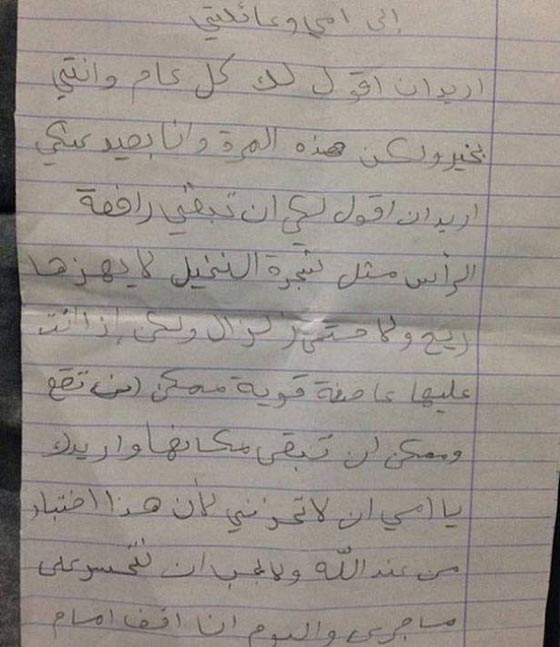 إلى امي وعائلتي
اريد ان اقول لك كل عام وانتي
بخير ولكن هذه المرة وانا بعيد عنكي
اريد ان اقول لكي ان تبقي رافعة
الرأس مثل شجرة النخيل لا يهزها
ريح ولا حتى زلزال ولكن إذا انت
عليها عاصفة قوية ممكن ان تقع
وممكن ان تبقى مكانها واريدك
يا امي ان لا تحزني لأن هذا اختبار
من عند الله ولا يجب ان نتحسر على
ما جرى واليوم انا اقف امام